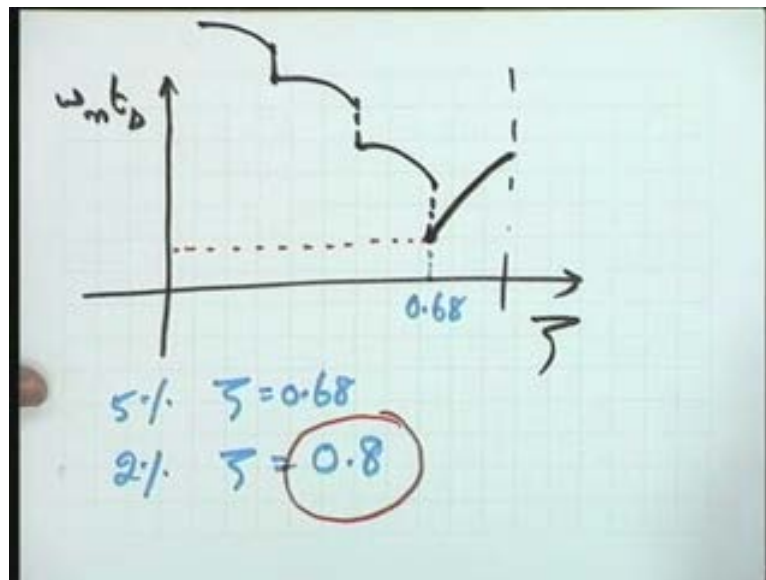 ωₙtₛ
0.68
ζ
5% ζ = 0.68
2% ζ = 0.8